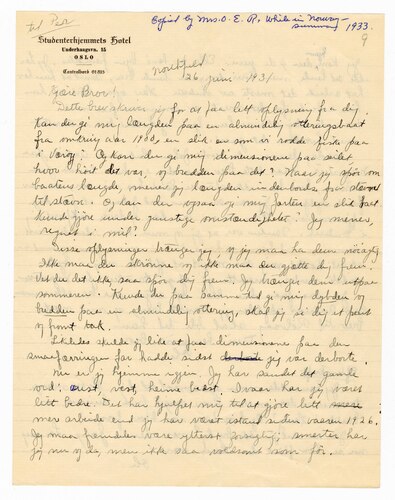 til Per
Copied by Mrs. O. E. R. while in Norway - summer 1933.
9
Studenterhjemmets Hotel
Underhaugsvn. 15
OSLO
Centralbord 61825
Northfield
26 juni 1931
Gjære Bror
Dette brev skriver jeg for at faa litt oplysning fra dig.
Kan du gi mig længden paa en almindelig ottringsbaat
fra omkring aar 1900, en slik en som vi rodde fiske paa
i Værøy? Og kan du gi mig dimensionene paa seilet,
hvor høit det var, og bredden paa det? Naar jeg spør om
baatens længde, mener jeg længden indenbords fra stavn
til stavn. Og kan du ogsaa gi mig farten en slik baat
kunde gjøre under gunstige omstændigheter? Jeg mener,
regnet i mil?
Disse oplysninger trænger jeg og jeg maa ha dem nöiagtig.
Ikke maa du skrönne og ikke maa du gjætte dig frem.
Vet du det ikke saa spör dig frem. Jeg trænger dem utpaa
sommeren. Kunde du paa samme tid gi mig dybden og
bredden paa en almindelig ottring, skal jeg si dig et pent
og fromt tak.
Likeledes skulde jeg like at faa dimensionene paa den
smaafæringen far hadde sidst jeg var derborte.
Nu er jeg hjemme igjen. Jeg har sandet det gamle
ord: øust, vest, heime bedst. Ivaar har jeg været
litt bedre. Det har hjulpet mig til at gjöre litt
mer arbeide end jeg har været istand siden vaaren 1926.
Jeg maa fremdeles være ytterst forsigtig; smerter har
jeg nu og da, men ikke saa voldsomt som för.